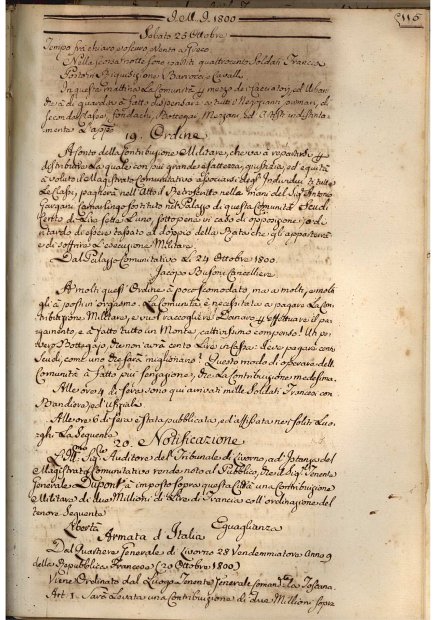 J. M. J. 1800
116
Sabato 25 Ottobre
Tempo fra chiaro e oscuro Vento a
Nella scorsa notte sono partiti quattrocento Soldati Francesi
Cavall.
In questa mattina la Comunità
di guardia à fatto dispensare a tutti i Negozianti, di
seconda Classe, Fondachi, Bottegai, Mezzani ed indistinta-
mente
19. Ordine
A conto della Contribuzione Militare, che và a repartirsi, e
distribuirsi la quale con più grande esattezza, giustizia, ed equità
à voluto il Magistrato Comunitativo di tutte
le Case, pagherà nell'Atto nelle mani del Sig. Antonio
Camarlingo sostituto del Palazzo di questa Comunità Scudi
Cento di Lire Sette l'uno, sotto pena in caso di opposizione, o di
ritardo di essere tassato al doppio della Rata che gli apparterrà
e di soffrire l'esecuzione Militare.
Dal Palazzo Comunitativo li 24 Ottobre 1800.
Jacopo Busoni Cancelliere
A molti quest'Ordine à poco scomodato, ma a molti, e molti
gli à posti in orgasmo. La Comunità è necessitata a pagare la Con-
tribuzione Militare, e vuol raccogliere Denaro per effettuare il pa-
gamento, e à fatto tutto un Monte, e cattivissimo composto! Un po-
vero Bottegajo, che non avrà cento Lire in Cassa deve pagare cento
Scudi, come uno che sarà miglionario! Questo modo di operare dell
Comunità à fatto più sensazione, che la Contribuzione medesima.
Alle ore 4 di sera sono qui arrivati mille Soldati Francesi con
Bandiera, ed
Alle ore 6 di sera è stata pubblicata, ed affissata nei soliti Luo-
ghi la Seguente
20. Notificazione
L'Ill. Sig. Auditore del Tribunale di Livorno, ad Istanza del
Magistrato Comunitativo rende noto al Pubblico, che il Sig. Tenente
Generale Dupont à imposto sopra questa Città una Contribuzione
Militare di due Millioni di Lire di Francia coll'ordinazione del
tenore Seguente
Libertà Eguaglianza
Armata d'Italia
Dal Quartiere Generale di Livorno 28 Vendemmiatore Anno 9
della Repubblica Francese (20 Ottobre 1800)
Viene Ordinato dal Luogo Tenente Generale Comand. la Toscana.
Art. 1. Sarà Levata una Contribuzione di due Millioni sopra